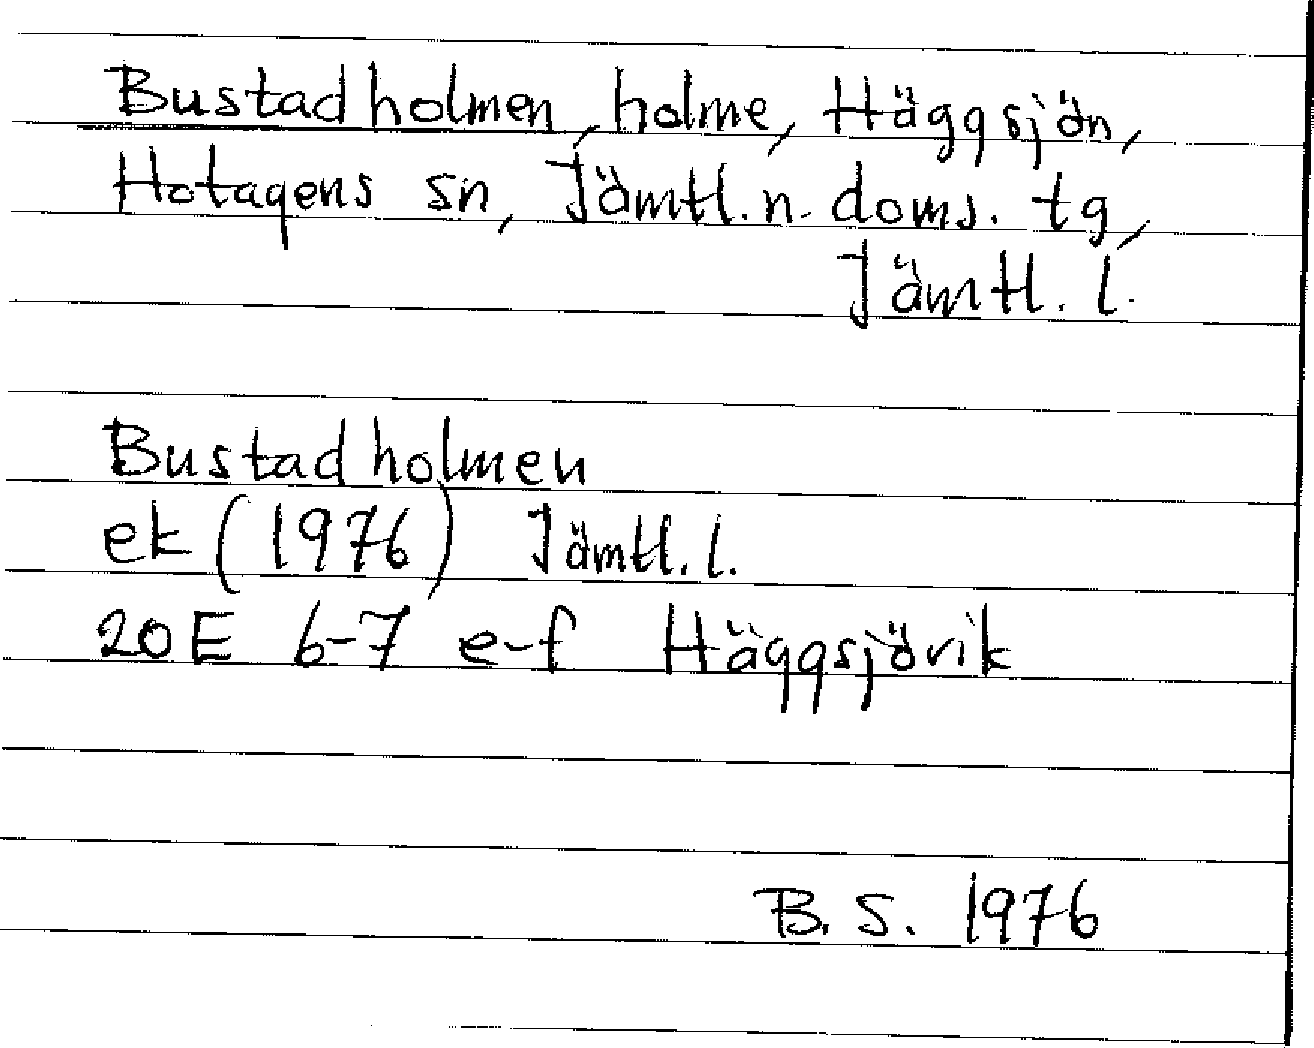 Bustadholmen, holme, Häggsjön,
Hotagens sn, Jämtl. n. doms. tg,
Jämtl. l.
Bustadholmen
ek (1976) Jämtl. l.
20E 6-7 e-f Häggsjövik
B. S. 1976